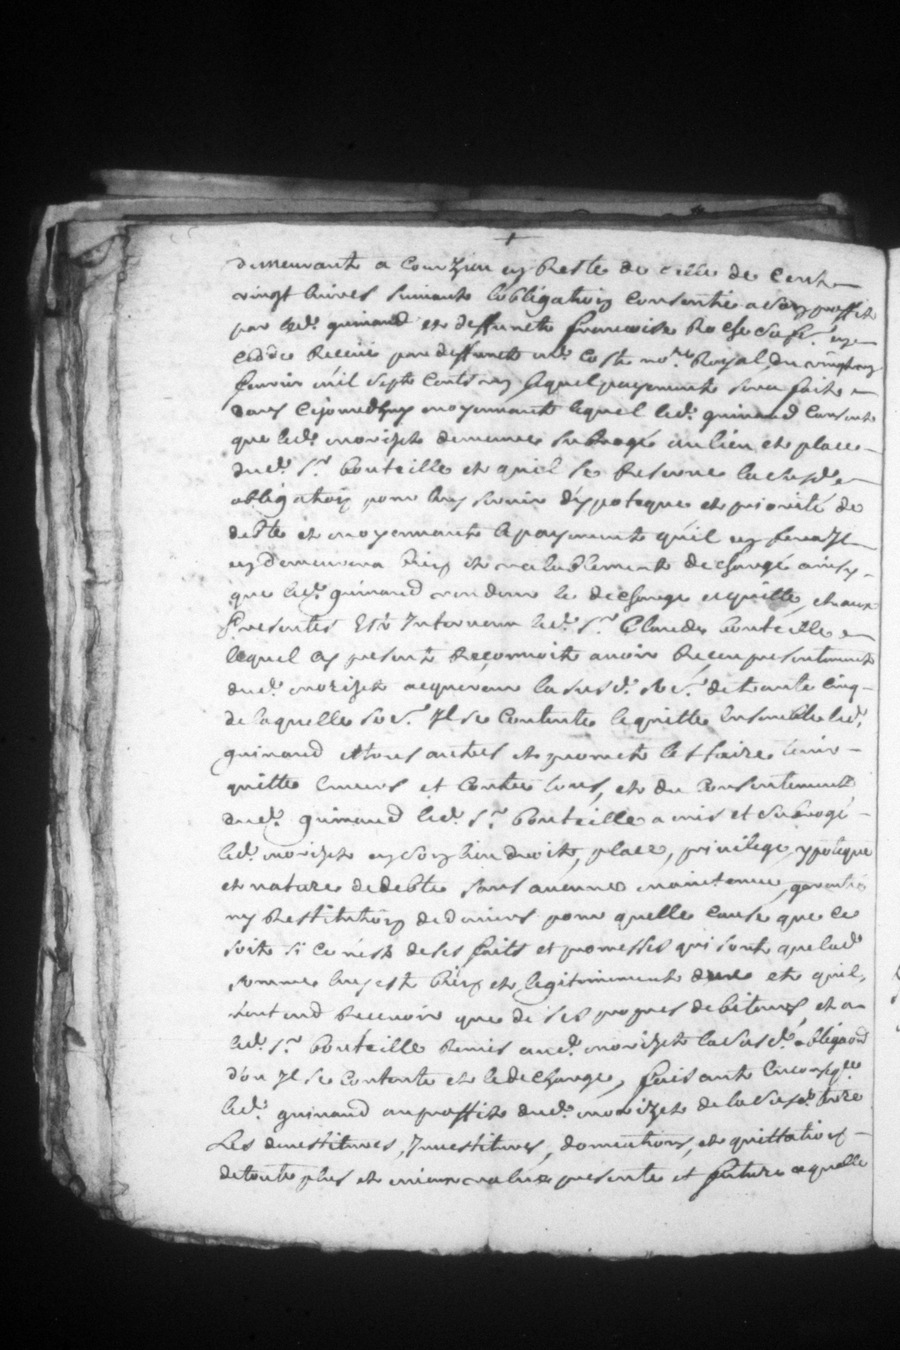 demeurant a Courzieu en Reste de celle de Cent
vingt livres suivant lobligation consentie a son proffit
par led. guinand et deffuncte francoise Roche sa f.e
Receue par deffunct me Coste nore Royal, du vingt
fevrier mil sept Cents lequel payement sera fait
dans moyennant lequel led. guinand Consent
que led. morizet demeure subrogé au lieu et place
dud. Sr. bouteille et quil se Reserve la susd.
obligation pour luy servir d'ypoteque et priorité de
debte et moyennant le payement qu'il en fera Il
en demeurera bien et vallablement dechargé ainsy
que led. guinand le decharge et quitte, et aux
presentes Est Intervenu led. Sr. Claude bouteille
lequel de present Reconnoit avoir Receu presentement
dud. morizet acquereur la susd. de trante cinq
de laquelle Il se Contente le quitte Ensemble led.
guinand et tous autres et promet le faire tenir
quitte Envers et Contre tous, et du Consentement
dud. guinand led. Sr. bouteille a mis et subrogé
led. morizet en son lieu droit, place, privilege, ypoteque
et nature de debte sans aucune maintenue, garantie
ny Restitution de deniers pour quelle cause que ce
soit si ce nest de ses faits et promesses qui sont que lad.
somme luy est bien et legitimement dune et quil
n'entend Recevoir que de ses propres debiteurs, et a
led. Sr. bouteille Remis aud. morizet la susd. obligaon
d'ou Il se contente et le decharge, faisant
led. guinand au proffit dud. morizet de la susd. terre
Les devestitures, Investitures, donnations, et quittation
de toute plus et mieux value presente et future a quelle